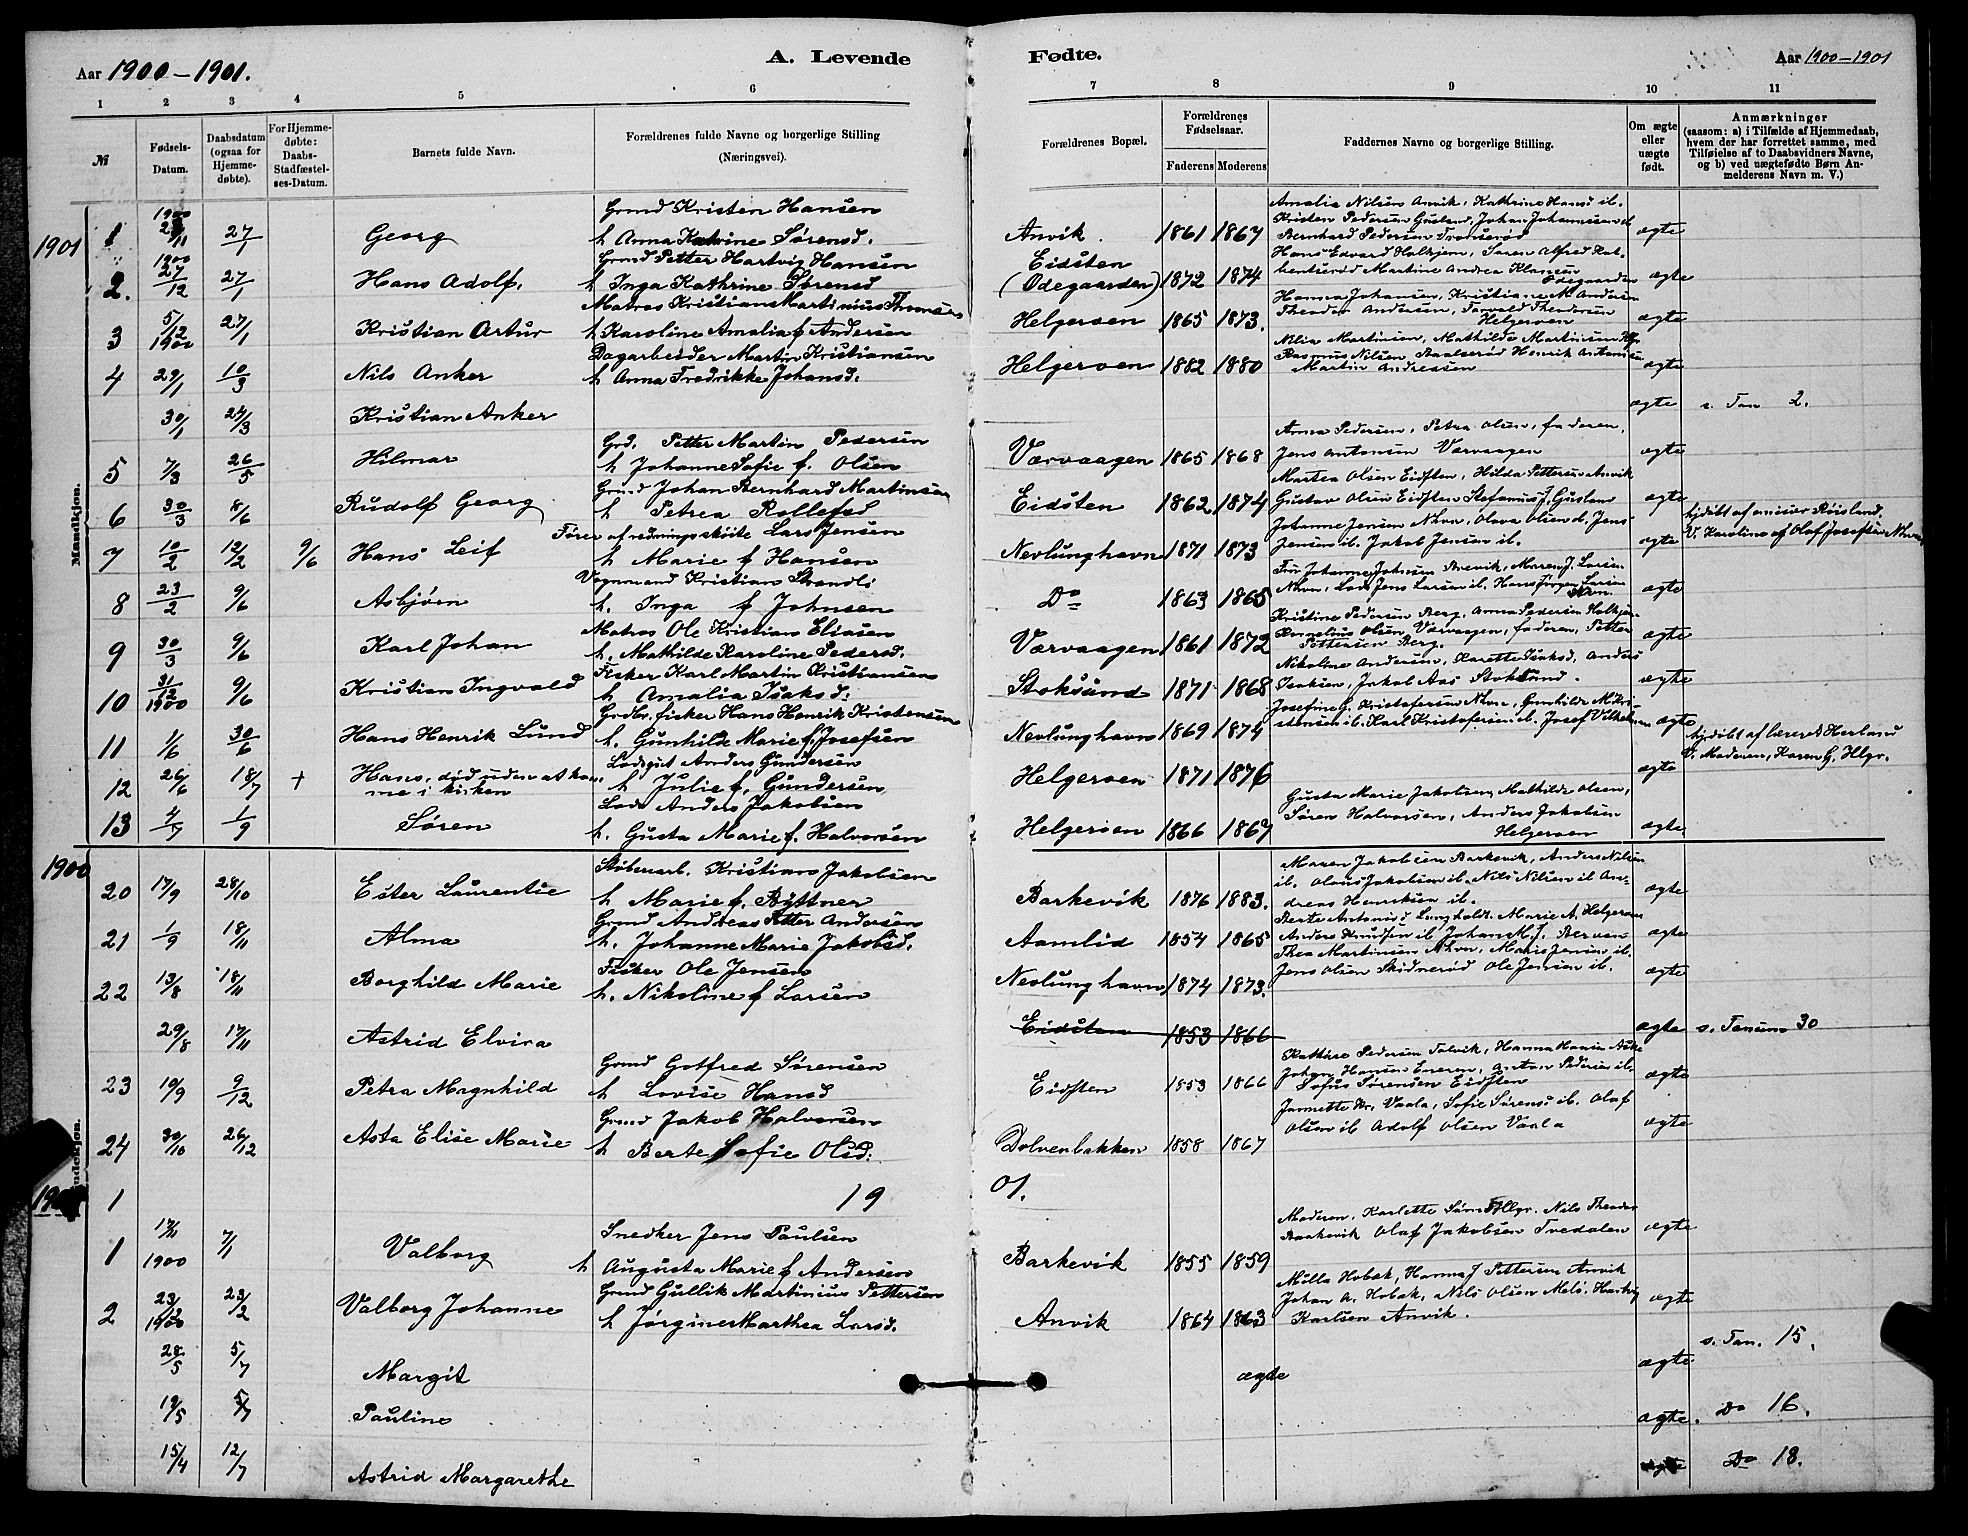 Aar 1900-1901.
A. Levende
Fødte.
Aar 1900-1901
1 2 3 4 5 6 7 8 9 10 11
№
Fødsels-Datum.
Daabsdatum (ogsaa for Hjemme-døbte).
For Hjemme-døbte: Daabs-Stadfæstel-ses-Datum.
Barnets fulde Navn.
Forældrenes fulde Navne og borgerlige Stilling (Næringsvei).
Forældrenes Bopæl.
Forældrenes Fødselsaar.
Faderens Moderens
Faddernes Navne og borgerlige Stilling.
Om ægte eller uægte født.
Anmærkninger
(saasom: a) i Tilfælde af Hjemmedaab, hvem der har forrettet samme, med Tilføielse af to Daabsvidners Navne, og b) ved uægtefødte Børn Anmelderens Navn m. V.)
Mandkjøn.
1901
1 1900 27/1 Georg Grmd Kristen Hansen
h Anna Katrine Sørensd. Anvik. 1861 1867 Amalia Nilsen Anvik, Kathrine Hansd ib.
Kristen Pedersen Gusland, Johan Johannessen
Bernhard Pedersen ægte
2. 1900 27/12 27/1 Hans Adolf. Grmd Petter Hartvig Hansen
h Inga Kathrine Sørensd Eidsten (Ødegaarden) 1872 1874 Hans Edvard Holkjem, Søren Alfred
Martine Andrea Klausen Ødegaarden ægte
3 5/12 1900 27/1 Kristian Artur Matros Kristian Martinius
h Karoline Amalia f Andersen Helgeroen 1865 1873. Hanna Johansen, Kristiane M Andersen
Theodor Andersen, Torvald Theodorsen Helgeroen ægte
4 29/1 10/3 Nils Anker Dagarbeider Martin Kristiansen
h Anna Fredrikke Johansd. Helgeroen 1882 1880 Nilia Martinsen, Mathilde Martinsen
Rasmus Nilsen, Henrik Antonsen
Martin Andreasen ægte
30/1 24/3 Kristian Anker ægte s. Tan 2.
5 7/3 26/5 Hilmar Grd. Petter Martin Pedersen
h Johanne Sofie f. Olsen Værvaagen 1865 1868 Anna Pedersen, Petra Olsen, faderen,
Jens Antonsen Værvaagen ægte
6 30/3 8/6 Rudolf Georg Grmd Johan Bernhard Martinsen
h Petrea Rollefsd Eidsten 1862 1874 Martea Olsen Eidsten, Hilda Pettersen Anvik
Gustav Olsen Eidsten Stefanius J. Gusland ægte
7 10/2 12/2 9/6 Hans Leif Fører af redningsskøite Lars Jensen
h Marie f Hansen Nevlunghavn 1871 1873 Johanne Jensen Nhvn, Olava Olsen d, Jens
Jensen ib. Jakob Jensen ib. ægte hjdøbt af emissær Røisland.
V. Karoline og Olaf Josefsen Nhvn
8 23/2 9/6 Asbjørn Vognmand Kristian Strandli
h. Inga f Johnsen Do 1863 1865 Frøk Johanne Johnsen Brevik, Maren J. Larsen
Nhvn, Lods Jens Larsen ib. Hans Jørgen Larsen ægte
9 30/3 9/6 Karl Johan Matros Ole Kristian Eliasen
h. Mathilde Karoline Pedersd. Værvaagen 1861 1872 Kristine Pedersen Berg, Anna Pedersen
Kornelius Olsen Værvaagen, faderen, Petter
Pettersen Berg. ægte
10 31/12 1900 9/6 Kristian Ingvald Fisker Karl Martin Kristiansen
h Amalia Isaksd. Stoksund 1871 1868 Nikoline Andersen, Karette Isaksd, Anders
Isaksen, Jakob Aas Stoksund. ægte
11 1/6 30/6 Hans Henrik Lund Grdbr. fisker Hans Henrik Kristensen
h. Gunhilde Marie f. Josefsen Nevlunghavn 1869 1874 Josefine G. Kristofersen Nhvn, Gunhilde M Kri-
stensen ib. Karl Kristofersen ib. Josef Vilhelmsen ægte
12 26/6 18/7 + Hans, død uden at kom-
me i kirken Lodsgut Anders Gundersen
h Julie f. Gundersen Helgeroen 1871 1876 ægte hjdøbt af lærer Herland
V. Moderen, Karen G. Hlgr.
13 4/7 1/9 Søren Lods Anders Jakobsen
h. Gusta Marie f. Halvorsen Helgeroen 1866 1867 Gusta Marie Jakobsen, Mathilde Olsen,
Søren Halvorsen, Anders Jakobsen
Helgeroen ægte
1900
20 17/9 28/10 Ester Laurentie Støbeuarb. Kristian Jakobsen
h Marie f. Büttner Barkevik 1876 1883. Maren Jakobsen Barkevik, Anders Nilsen
ib. Olaus Jakobsen ib. Nils Nilsen ib An-
dreas Henriksen ib. ægte
21 1/9 18/11 Alma Grmd Andreas Petter Andersen
h. Johanne Marie Jakobsd. Aamlid 1854 1865 Berte Antonisd Lungholdt. Marie A. Helgeroen
Anders Knudsen ib Johan M.J. Berven ægte
22 13/8 18/11 Borghild Marie Fisker Ole Jensen
h. Nikoline f Larsen Nevlunghavn 1874 1873. Thea Martinsen Nhvn, Marie Jensen ib.
Jens Olsen Skidnerød Ole Jensen ib. ægte
29/8 17/11 Astrid Elvira Eidsten 1853 1866 ægte s. Tanum 30
23 19/9 9/12 Petra Magnhild Grmd Gotfred Sørensen
h Lovise Hansd Eidsten 1853 1866 Kathrine Pedersen Tolvik, Hanna Hansen
Johan Hansen, Anton Pedersen ib.
Sofus Sørensen Eidsten ægte
24 30/10 26/12 Asta Elise Marie Grmd Jakob Halvorsen
h Berte Sofie Olsd. Dolvenbakken 1858 1867 Jannette Kr. Vaala, Sofie Sørensd ib. Olaf
Olsen ib Adolf Olsen Vaala ægte
1 19 01.
1 1900 7/1 Valborg Snedker Jens Paulsen
h Augusta Marie f Andersen Barkevik 1855 1859 Moderen, Karlette Hlgr. Nils Theodor
Barkevik Olaf Jakobsen Tvedalen ægte
2 23/12 1900 23/2 Valborg Johanne Grmd Gullik Martinius Pettersen
h Jørgine Marthea Larsd. Anvik 1864 1863 Milla Hobæk, Hanna J Pettersen Anvik
Johan A. Hobæk, Nils Olsen Melø. Hartvig
Karlsen Anvik. ægte
28/5 5/7 Margit ægte ægte s. Tan. 15.
19/5 5/7 Pauline ægte. Do 16.
15/4 12/7 Astrid Margarethe ægte Do 18.